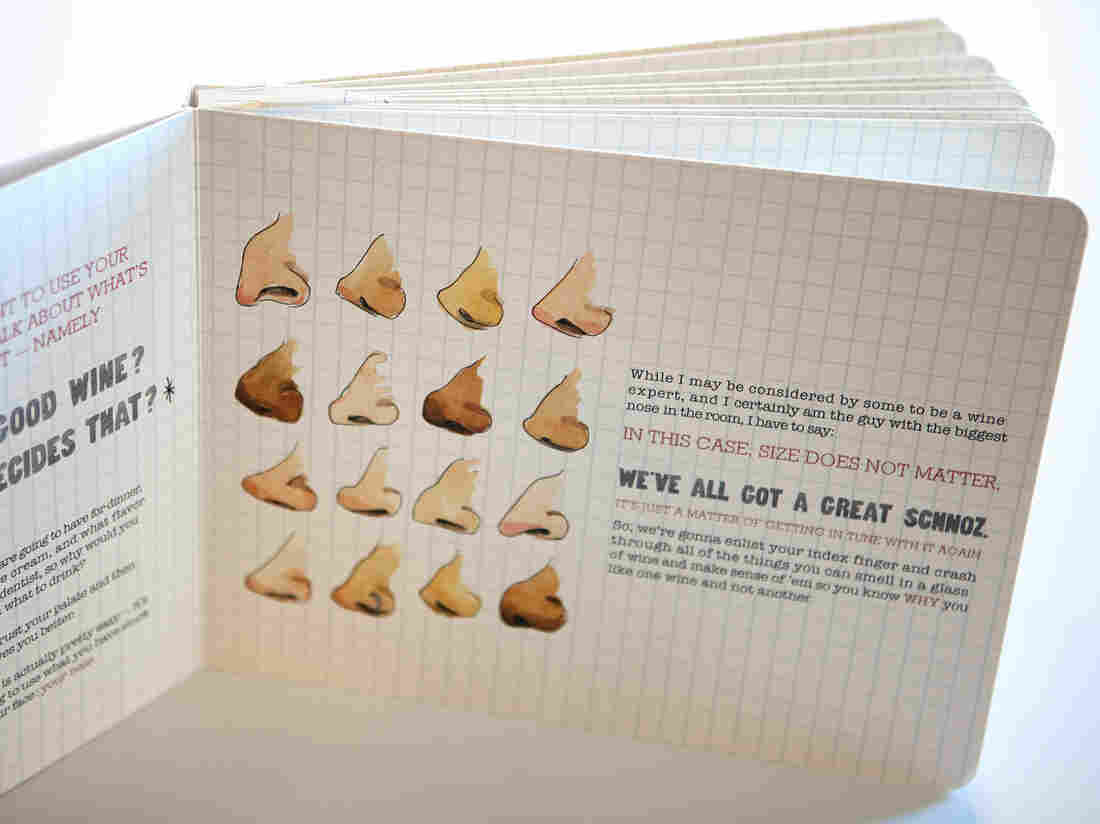 NT TO USE YOUR
ALK ABOUT WHAT'S
T — NAMELY
GOOD WINE?
ECIDES THAT?*
are going to have for dinner,
cream, and what flavor
dentist, so why would you
what to drink?
rust your palate and then
es you better.
is actually pretty easy —
g to use what you have stuck
ur face: your nose
While I may be considered by some to be a wine
expert, and I certainly am the guy with the biggest
nose in the room, I have to say:
IN THIS CASE, SIZE DOES NOT MATTER.
WE'VE ALL GOT A GREAT SCHNOZ.
IT'S JUST A MATTER OF GETTING IN TUNE WITH IT AGAIN
So, we're gonna enlist your index finger and crash
through all of the things you can smell in a glass
of wine and make sense of 'em so you know WHY you
like one wine and not another.